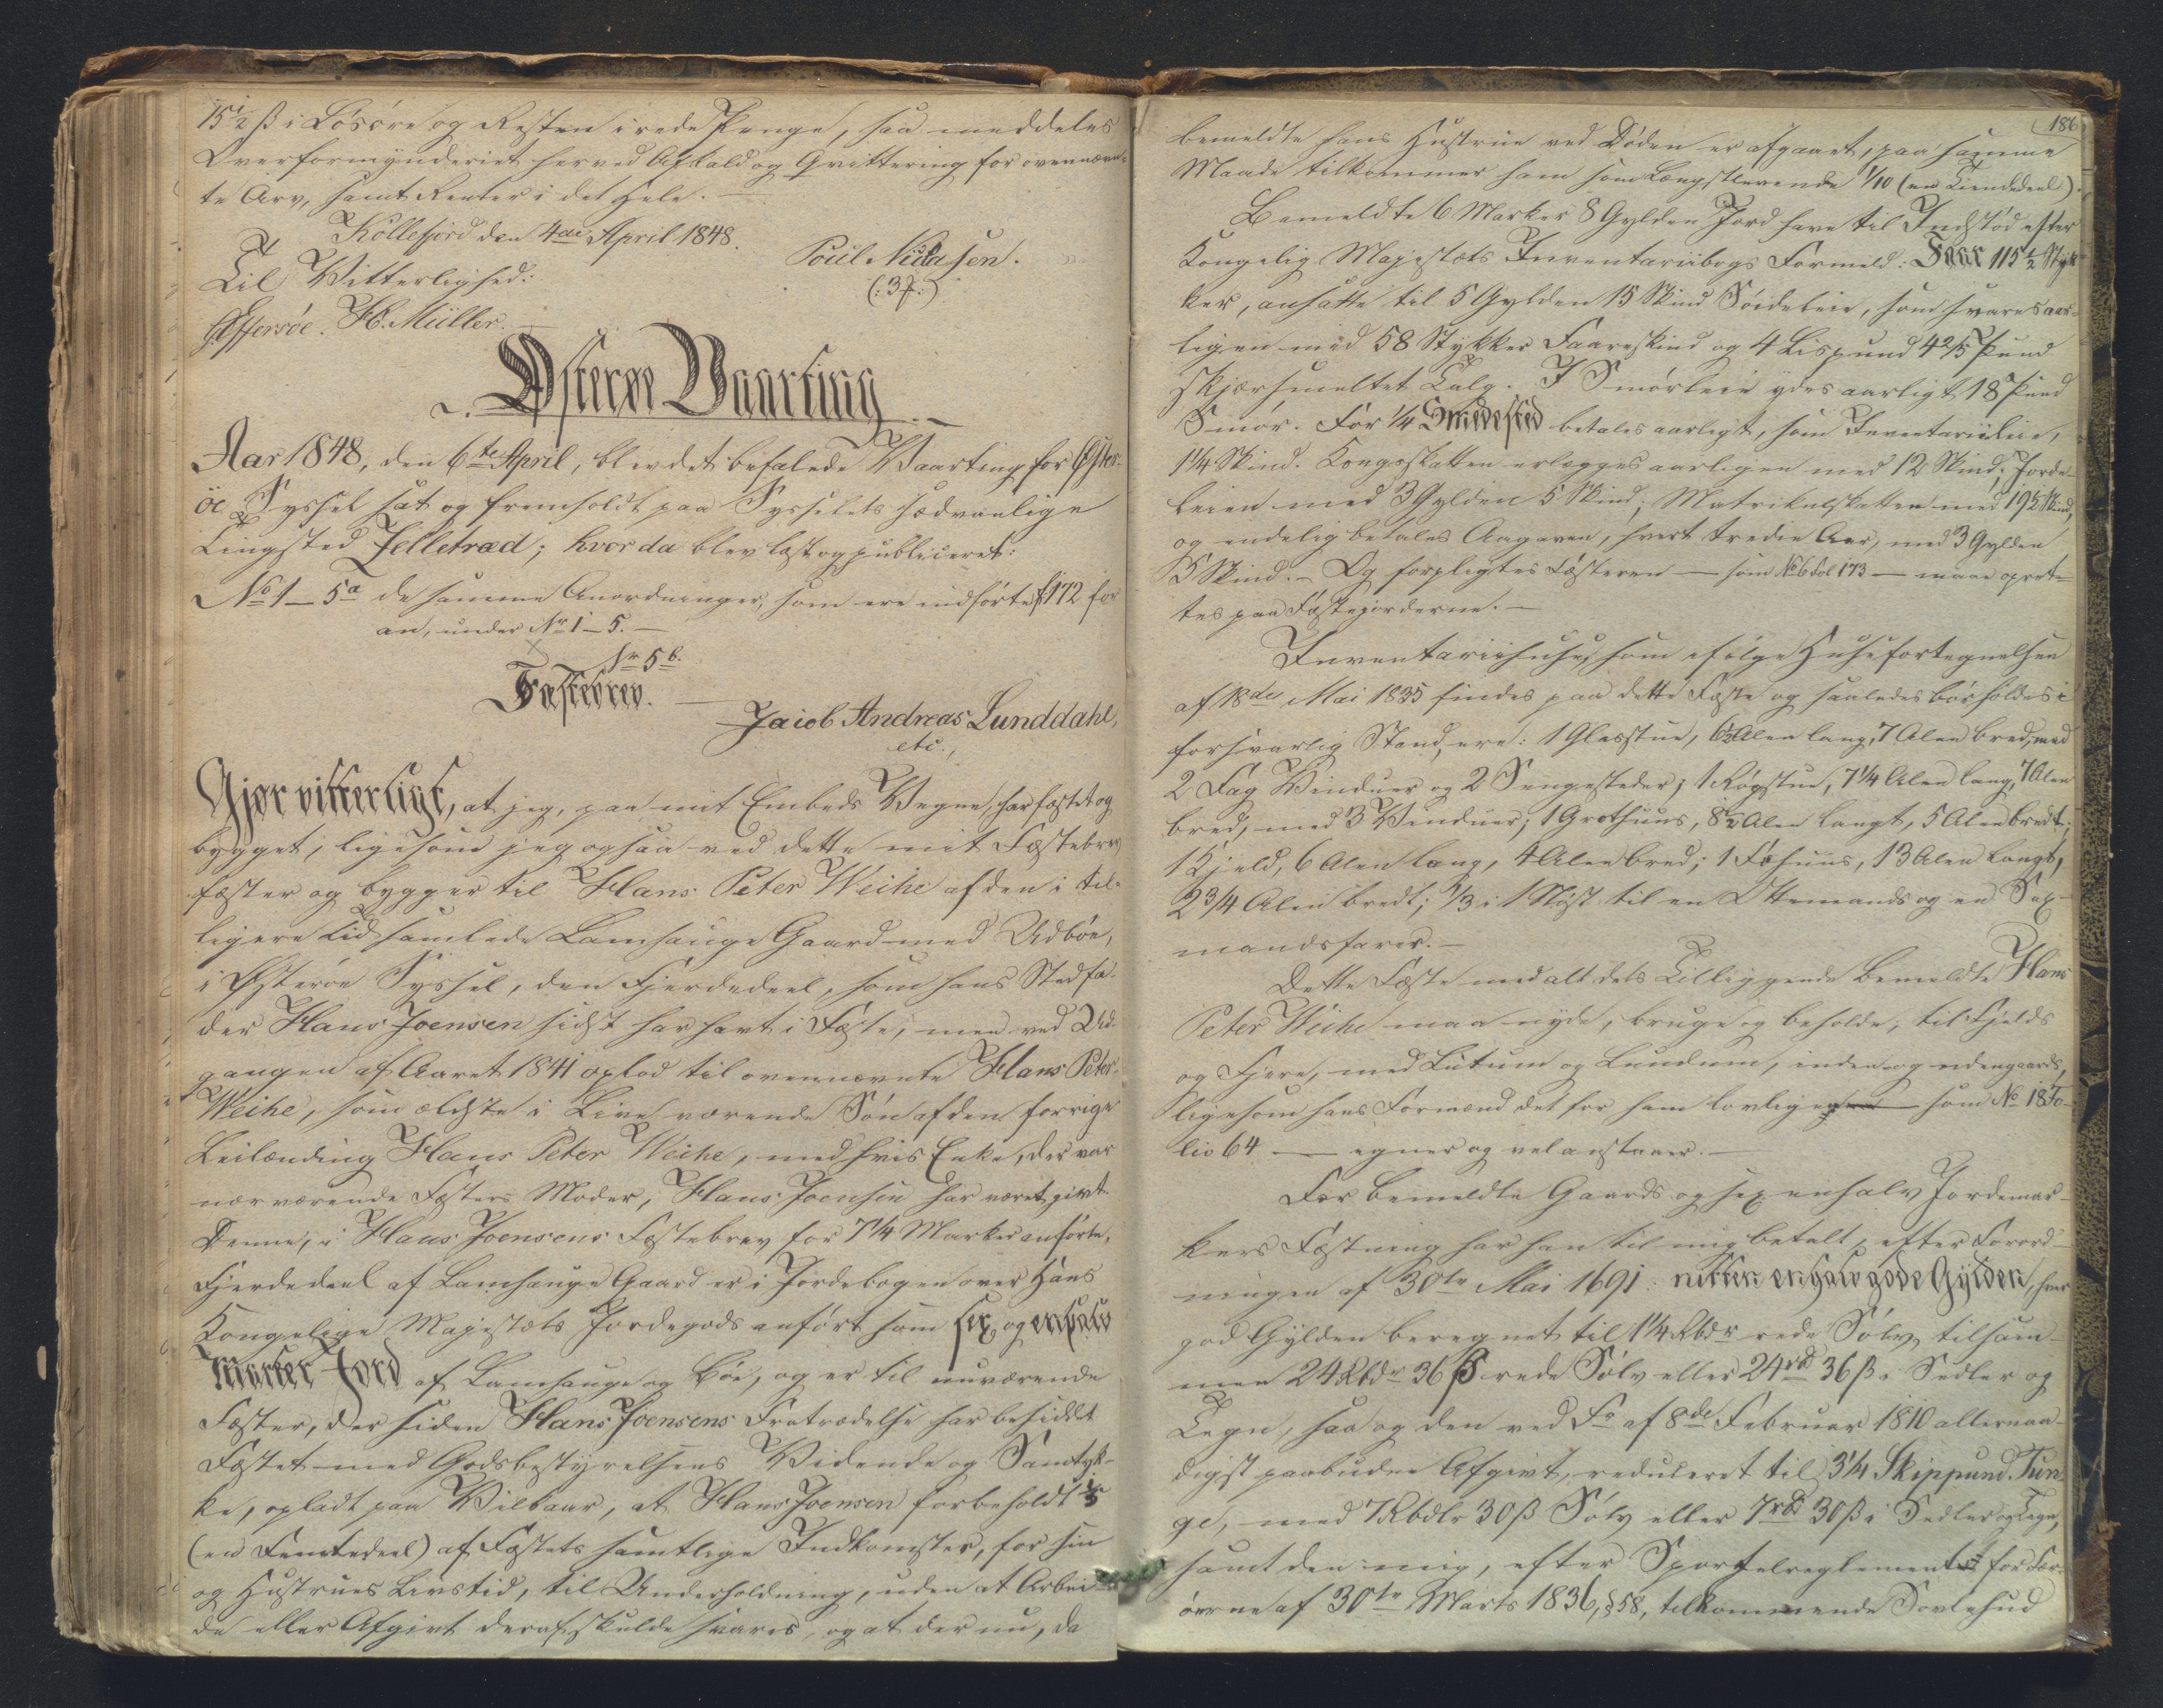 15½ ß i Løsøre og Resten i rede Penge, saa meddeles
Overformynderiet herved Afkald og Qvittering for ovennævn-
te Arv, samt Renter i det Hele. —
Kollefjord den 4de April 1848.
Poul Niclasen.
Til Vitterlighed:
(: 3 :)
Effersöe. H. Müller.
Østerøe Vaarting
Aar 1848, den 6te April, blev det befalede Vaarting for Öster-
öe Syssel sat og fremholdt paa Sysselets sædvanlige
Tingsted Jelletræd; hvor da blev læst og publiceret:
No 1 — 5a de samme Anordninger, som ere indførte f. 172 for
an, under Nr 1 — 5. —
Nr 5b.
Fæstebrev. —
Jacob Andreas Lunddahl,
etc.,
Gjør vitterligt, at jeg, paa mit Embeds Vegne, har fæstet og
bygget, ligesom jeg ogsaa ved dette mit Fæstebrev
fæster og bygger til Hans Peter Weihe af den i tid-
ligere Tid samlede Lamhauge Gaard med Udbøe,
i Østerøe Syssel, den Fjerdedeel, som hans Stedfa-
der Hans Joensen sidst har havt i Fæste, men ved Ud-
gangen af Aaret 1841 oplod til ovennævnte Hans Peter
Weihe, som ældste i Live værende Søn af den forrige
Leilænding Hans Peter Weihe, med hvis Enke, der var
nærværende Fæsters Moder, Hans Joensen har været givt.
Denne, i Hans Joensens Fæstebrev for 7¼ Marker anførte,
Fjerdedeel af Lamhauge Gaard er i Jordebogen over Hans
Kongelige Majestæts Jordegods anført som sex og enhalv
Marker Jord af Lamhauge og Bøe, og er til nuværende
Fæster, der siden Hans Joensens Fratrædelse har besiddet
Fæstet med Godsbestyrelsens Vidende og Samtyk-
ke, opladt paa Vilkaar, at Hans Joensen forbeholdt 1/5
(en Femtedeel) af Fæstets samtlige Indkomster, for sin
og Hustrues Livstid, til Underholdning, uden at Arbei-
de eller Afgivt deraf skulde svares, og at der nu, da
186
bemeldte hans Hustrue ved Døden er afgaaet, paa samme
Maade tilkommer ham som Længstlevende 1/10 (en Tiendedeel).
Bemeldte 6 Marker 8 Gylden Jord have til Indstød efter
Kongelig Majestæts Inventariibogs Formeld: Faar 115½ Styk-
ker, ansatte til 5 Gylden 15 Skind Søideleie, som svares aar-
ligen med 58 Stykker Faareskind og 4 Lispund 4 2/5 Pund
skjærsmeltet Talg. I Smørleie ydes aarligt 18 Pund
Smør. For ¼ Smedested betales aarligt, som Inventariileie,
1¼ Skind. Kongsskatten erlægges aarligen med 12 Skind; Jorde-
leien med 3 Gylden 5 Skind; Matrikulskatten med 19½ Skind,
og endelig betales Aagaven, hvert tredie Aar, med 3 Gylden
5 Skind. — Og forpligtes Fæsteren — som No 6 fol 173 — maae opret-
tes paa Fæstejorderne. —
Inventariihuse, som ifølge Husefortegnelsen
af 18de Mai 1835 findes paa dette Fæste og saaledes bør holdes i
forsvarlig Stand, ere: 1 Glasstue, 6½ Alen lang, 7 Alen bred, med
2 Fag Vinduer og 2 Sengesteder; 1 Røgstue, 7¼ Alen lang, 7 Alen
bred, med 3 Vinduer; 1 Grothuus, 8½ Alen langt, 5 Alen bredt;
1 Hjeld, 6 Alen lang, 4 Alen bred; 1 Fæhuus, 13 Alen langt,
2¾ Alen bredt; 1/3 i 1 Nøst til en Ottemands og en Sex-
mandsfarer. —
Dette Fæste med alt dets Tilliggende bemeldte Hans
Peter Weihe maa nyde, bruge og beholde, til Fjelds
og Fjære, med Luttum og Lundum, inden- og udengaards,
ligesom hans Formænd det før ham lovlig — som No 18 Fo-
lio 64 — egner og vel anstaaer. —
For bemeldte Gaards og sex enhalv Jordemar-
kers Fæstning har han til mig betalt, efter Forord-
ningen af 30te Mai 1691: nitten enhalv gode Gylden, hver
god Gylden beregnet til 1¼ Rbdr rede Sølv, tilsam-
men 24 Rbdr 36 ß rede Sølv eller 24 rd 36 ß i Sedler og
Tegn, saa og den ved Fr af 8de Februar 1810 allernaa-
digst paabudne Afgivt, reduceret til 3¼ Skippund Tun-
ge, med 7 Rbdlr 30 ß Sølv eller 7 rd 30 ß i Sedler og Tegn,
samt den mig, efter Sportelreglementet for Fær-
øerne af 30te Marts 1836, § 58, tilkommende Sovlehud